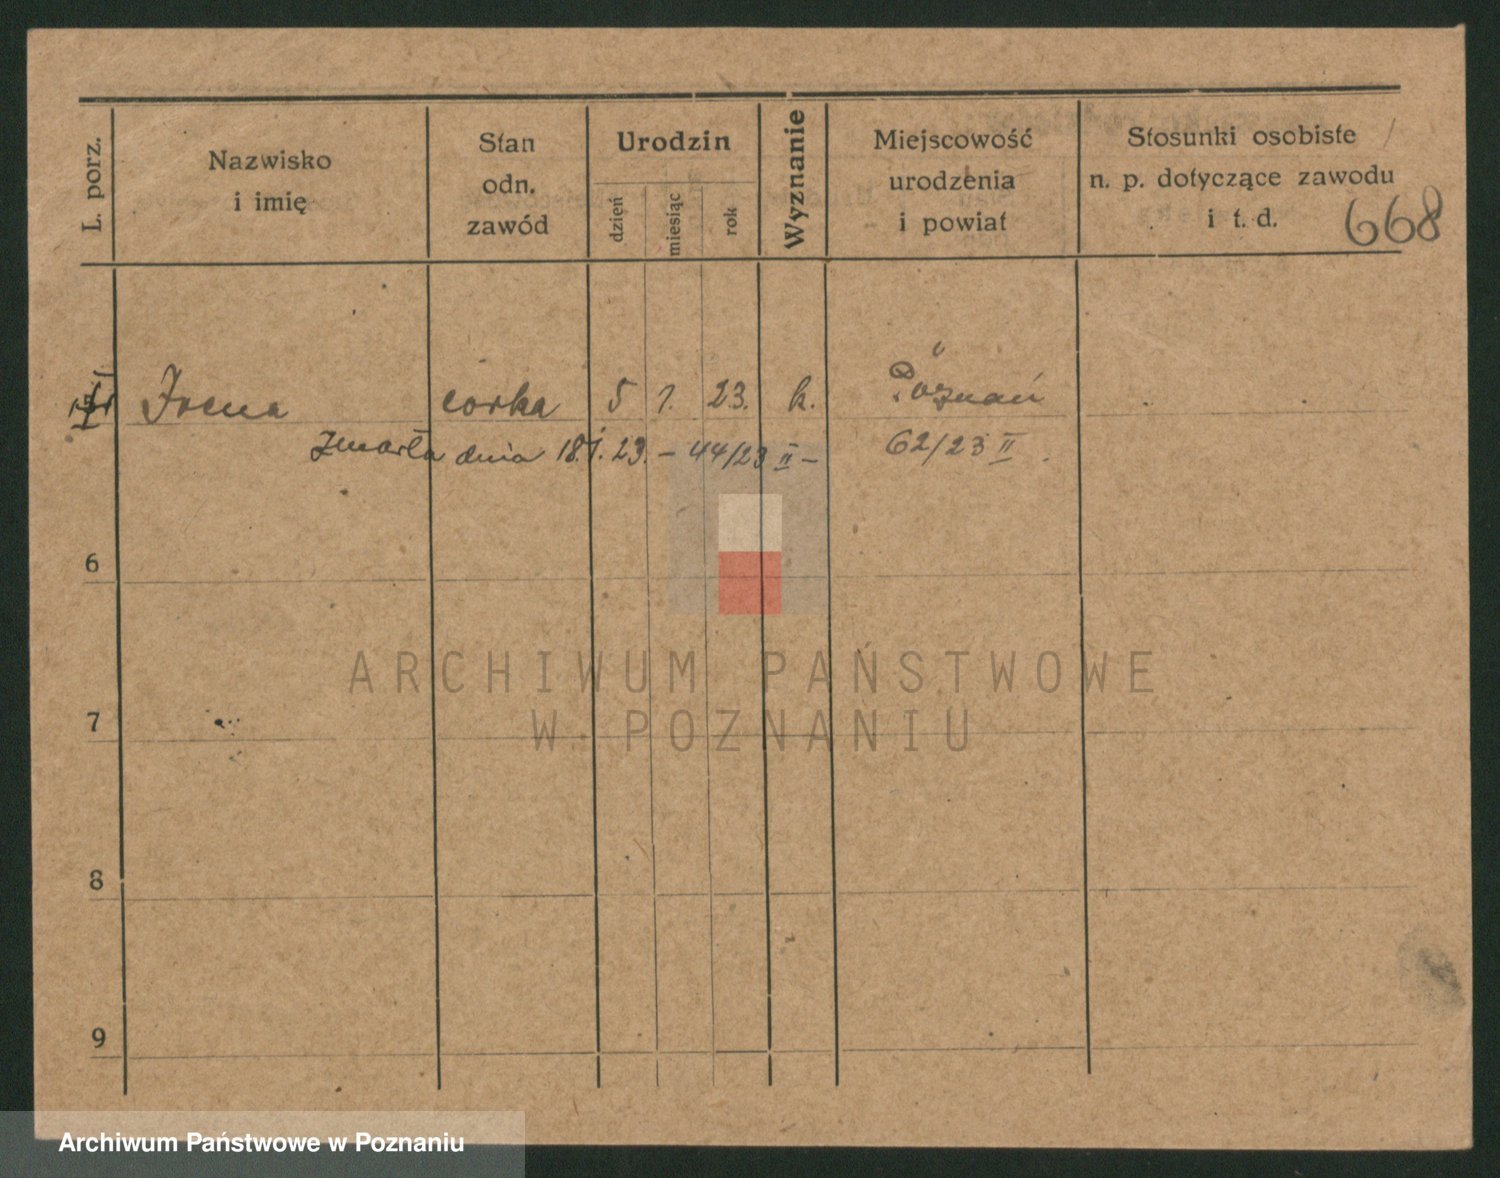 L. porz.
Nazwisko
i imię
Stan
odn.
zawód
Urodzin
dzień
miesiąc
rok
Wyznanie
Miejscowość
urodzenia
i powiat
Stosunki osobiste
n. p. dotyczące zawodu
i t. d.
668
Irena córka 5 1. 23. k. Poznań
zmarła dnia 18.1.23. – 44/23 II – 62/23 II
6
7
8
9
ARCHIWUM PAŃSTWOWE
W POZNANIU
Archiwum Państwowe w Poznaniu